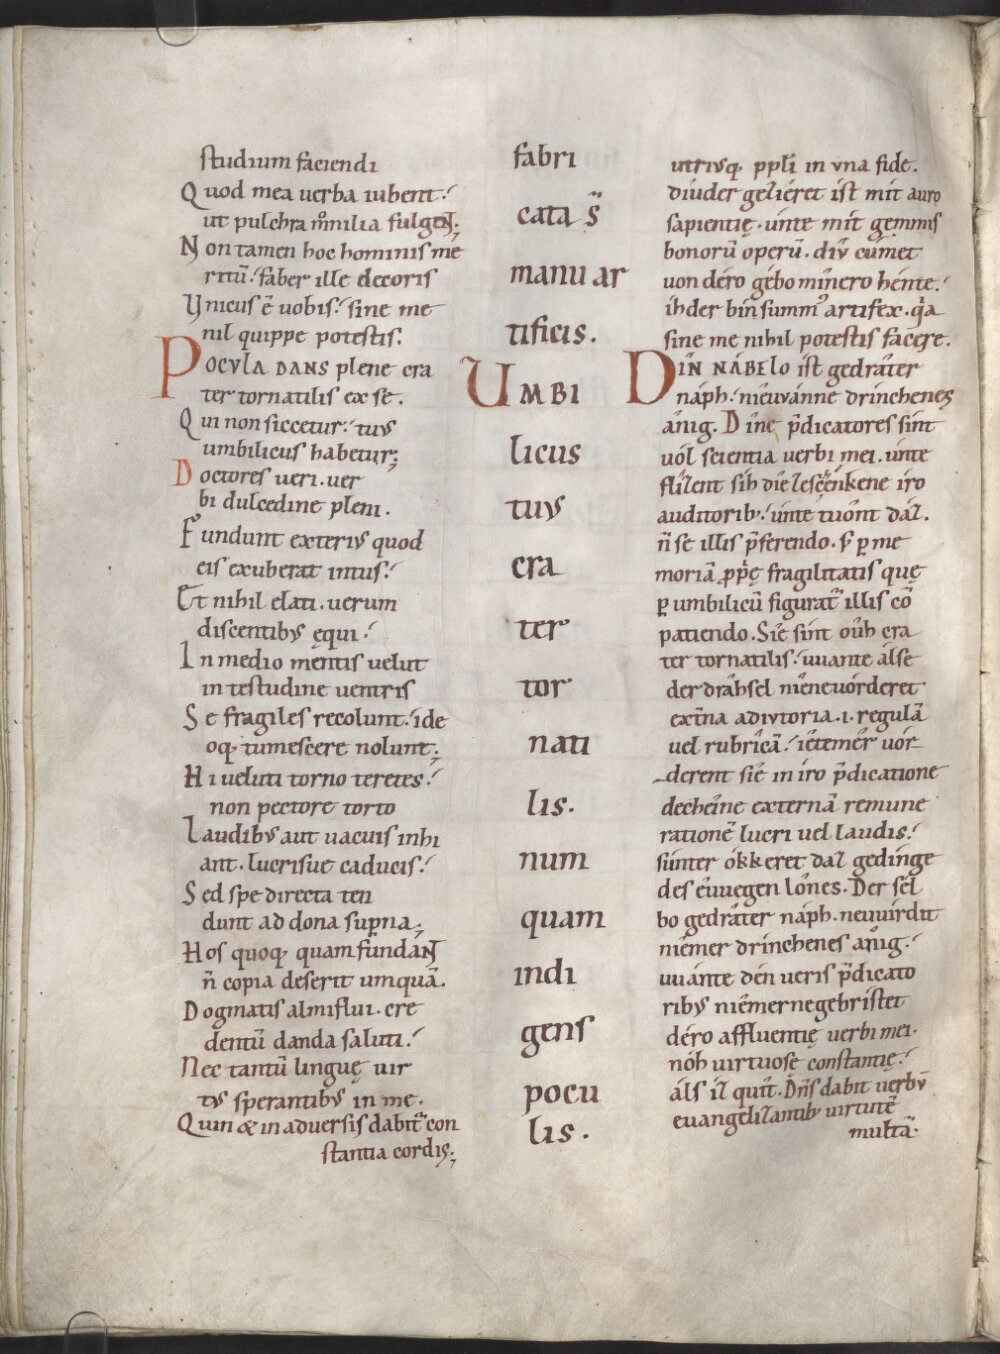 studium faciendi
Quod mea uerba iubent:
ut pulchra m̊nilia fulgeNt;
Non tamen hoc hominis me
ritū: faber ille decoris
Ynicus ē uobis: sine me
nil quippe potestis.
POCVLA DANS plene cra
ter tornatilis ex se.
Qui non siccetur: tuus
umbilicus habetur;
Doctores ueri. uer
bi dulcedine pleni.
Fundunt exterius quod
eis exuberat intus:
Et nihil elati. uerum
discentibus ęqui:
In medio mentis uelut
in testudine uentris
Se fragiles recolunt: ide
oq; tumescere nolunt;
Hi ueluti torno teretes:
non pectore torto
Laudibus aut uacuis inhi
ant. lucrisue caducis:
Sed spe directa ten
dunt ad dona suṗna;
Hos quoq; quam fundaNt
n̄ copia deserit umquā.
Dogmatis almiflui. cre
dentū danda saluti:
Nec tantū linguę uir
tus sperantibus in me.
Quin & in aduersis dabit᷑ con
stantia cordis;
fabri
cata s̄
manu ar
tificis.
UMBI
licus
tuus
cra
ter
tor
nati
lis.
num
quam
indi
gens
pocu
lis.
utriusq; ppl̄i in vna fide.
díuder geliêret ist mit auro
sapientię. únte mít gęmmis
bonorū operū. díu cúmet
uon déro gébo mînero hénte:
íhder bín summ᷒ artifex. q̇a
sine me nihil potestis facere.
DÎN NÁBELO ist gedrâter
náph: nieuuánne drínchenes
ânig. Dîne p̄dicatores sint
uól scientia uerbi mei. únte
flîzent síh díe zescénkene íro
auditorib᷒: únte tuônt dáz.
n̄ se illis p̄ferendo. s; ꝑ me
moriā ꝓp̄ę fragilitatis quę
ꝑ umbilicū figurat᷑ illis cō
patiendo. Síe sínt oûh cra
ter tornatilis: uuante álse
der drâhsel niêneuórderet
ext̄na adiutoria. i. regulā
uel rubricā: iêtemêr uór
derent síe in iro p̄dicatione
decheîne externā remune
rationē lucri uel laudis:
súnter ókkeret daz gedínge
des êuuegen lônes. Der sél
bo gedrâter náph. neuuírdit
niêmer drínchenes ânig:
uuánte dén ueris p̄dicato
ribus niêmernegebrístet
déro affluentię uerbi mei.
nóh uirtuosę constantię:
áls íz quît. Dn̄s dabit uerbū
euangelizantib᷒ uirtutē
multā.